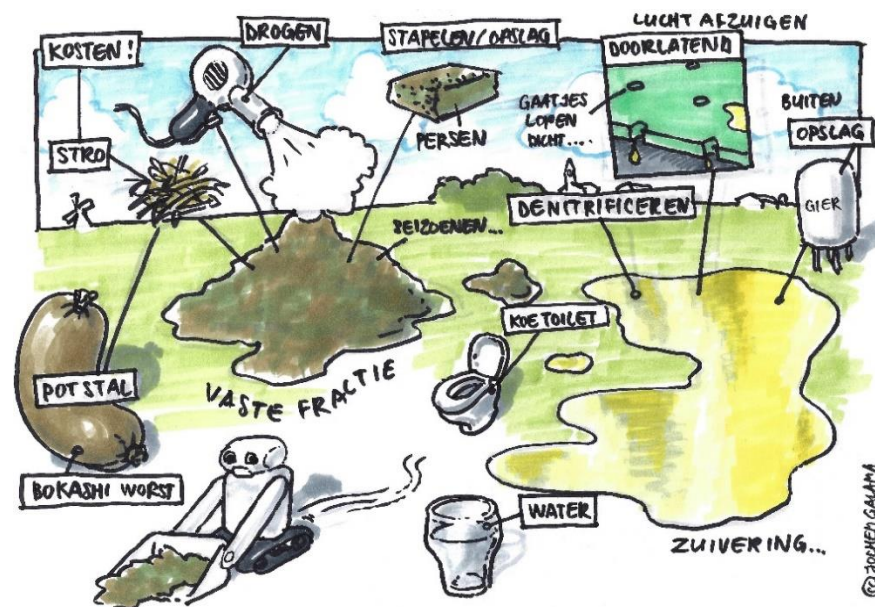 KOSTEN!
DROGEN
STAPELEN/OPSLAG
LUCHT AFZUIGEN
DOORLATEND
GAATJES
LOPEN
DICHT....
BUITEN
OPSLAG
PERSEN
STRO
GIER
DENITRIFICEREN
SEIZOENEN...
KOETOILET
POTSTAL
VASTE FRACTIE
BOKASHI WORST
WATER
ZUIVERING...
(C) JOCHEM GALAMA